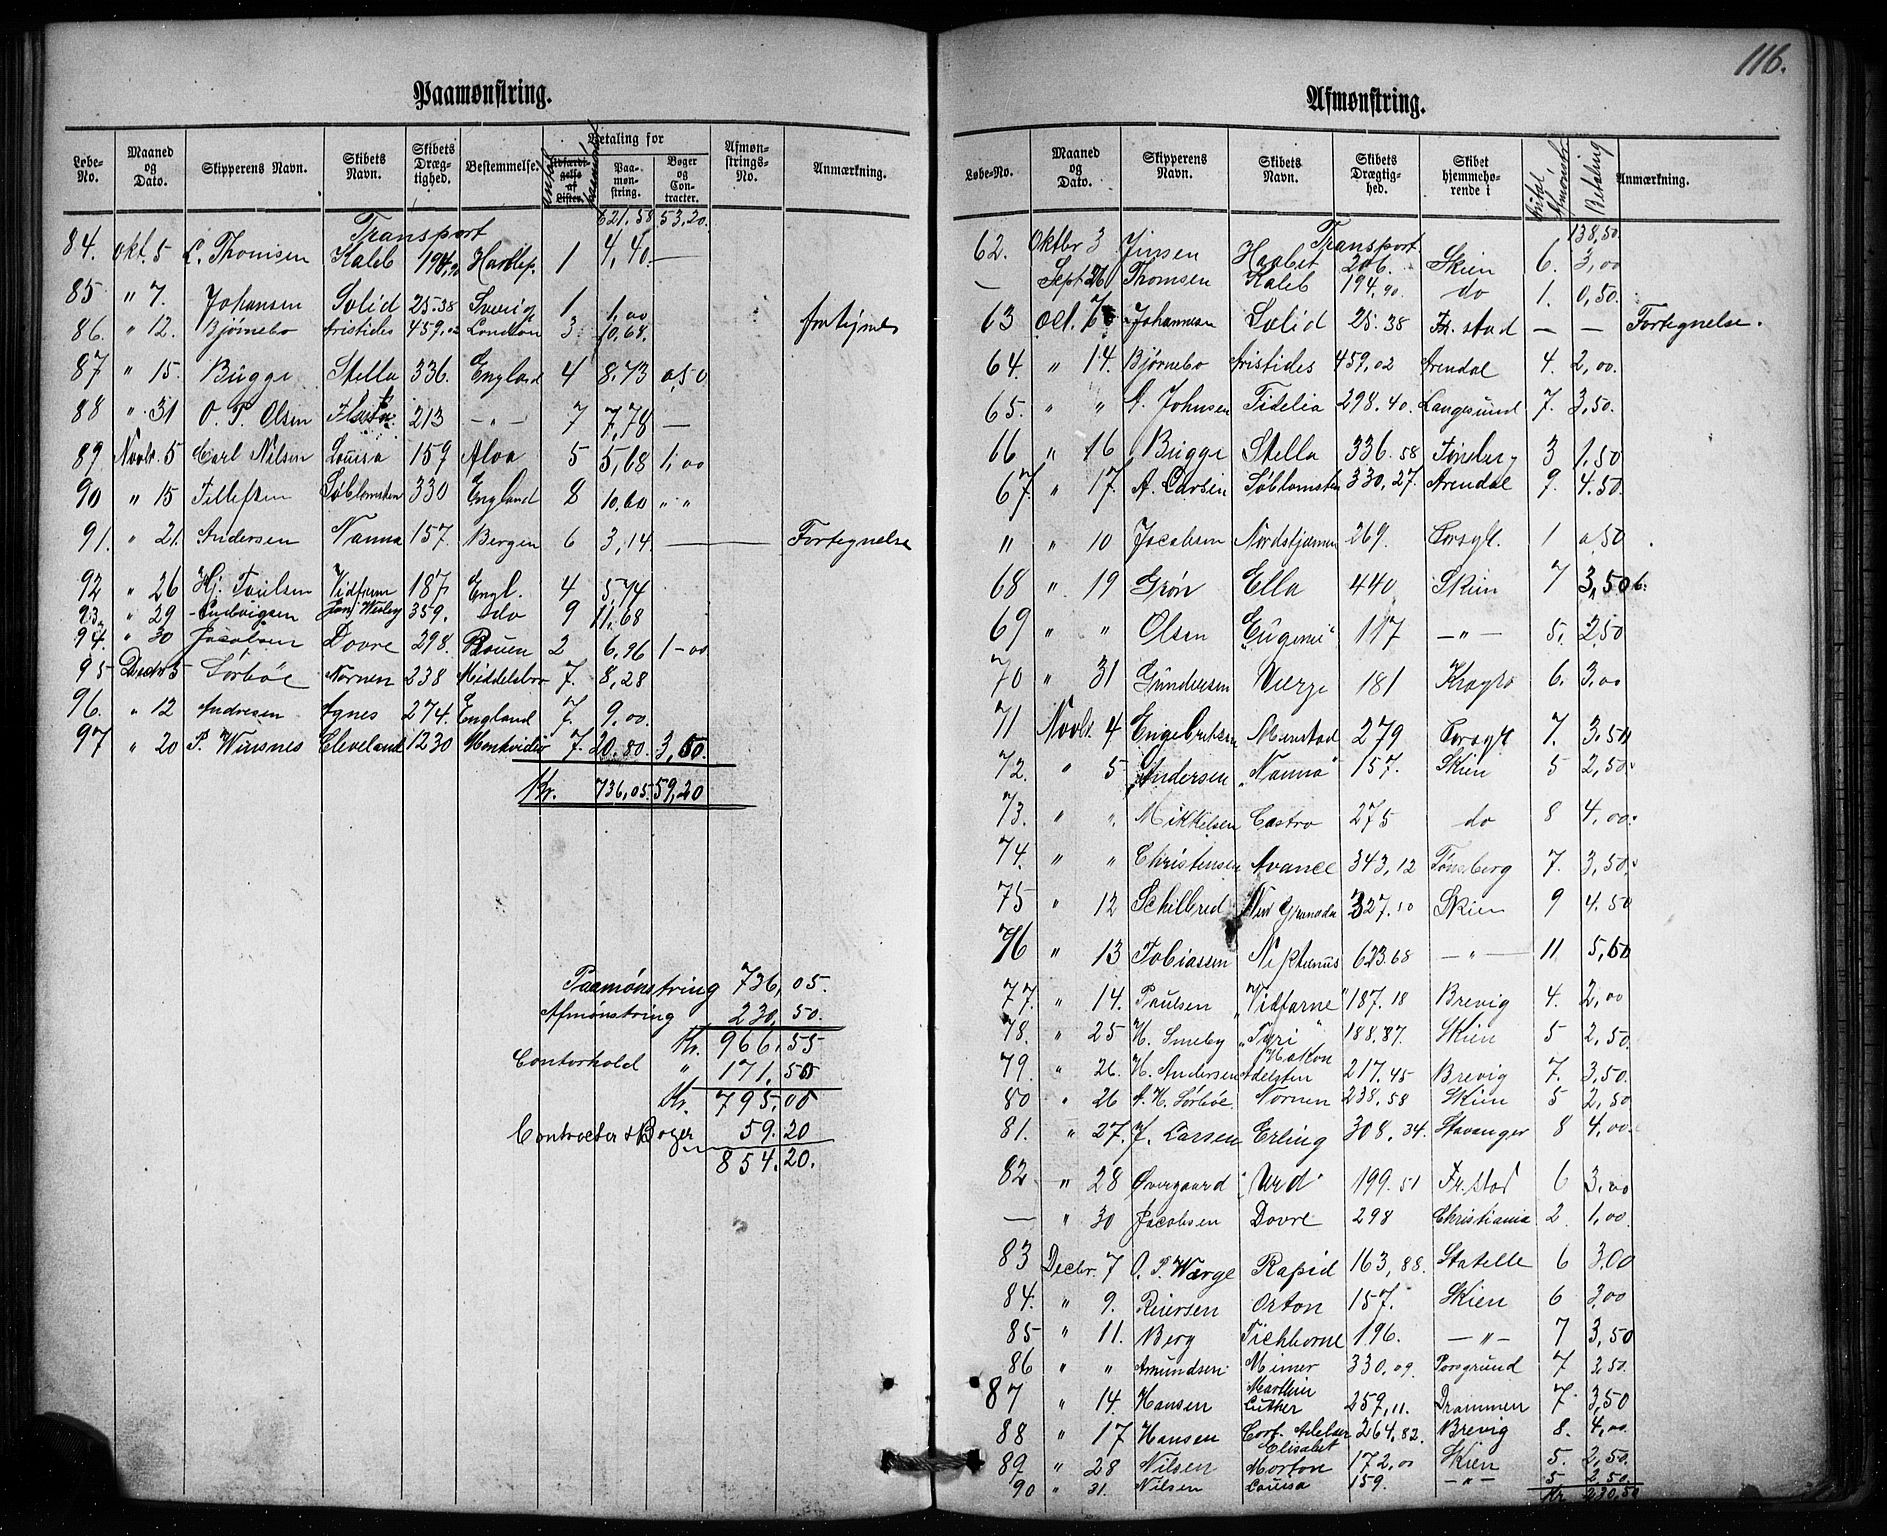 116.
Paamønstring.
Løbe-No. Maaned og Dato. Skipperens Navn. Skibets Navn. Skibets Dræg-tighed. Bestemmelse. Betaling for Afmøn-strings-No. Anmærkning.
Udfærdi-gelse af Lister. Paa-møn-string. Bøger og Con-tracter.
Transport 621,58 53,20.
84. Okt. 5 L. Thomsen Kaleb 194,90 Hartlep. 1 4,40. —
85 " 7. Johansen Solid 25.38 Sverige 1 1,00
86. " 12. Bjørnebo Aristides 459,02 London 3 10,68.
87 " 15. Bugge Stella 336. England 4 8,73 0,50
88 " 31 O. P. Olsen 213 — " — 7 7,78 —
89 Novbr. 5 Carl Nilsen Louisa 159 Aloa 5 5,68 1,00
90 " 15 Tellefsen Søblomsten 330 England 8 10,60 " "
91. " 21. Andersen Nanna 157. Bergen 6 3,14. — Fortegnelse
92 " 26 Hj. Poulsen Vidfarne 187 Engl. 4 5,74
93. " 29 Ludvigsen John Wesley 359. do 9 11,68
94. " 30 Jacobsen Dovre 298. Rouen 2 6,96 1-00
95 Decbr 5 Sørbøe Nornen 238 Middelsbro 7. 8,28
96. " 12 Andresen Agnes 274. England 7. 9,00.
97 " 20 P. Winsnes Cleveland 1230 Montvidio 7. 20,80. 3,50.
Kr. 736,05. 59,20
Paamønstring 736,05.
Afmønstring 230,50.
Kr. 966,55
Contorhold " 171,50
Kr. 795,05
Contracter & Bøger 59.20
854.20.
Afmønstring.
Løbe-No. Maaned og Dato. Skipperens Navn. Skibets Navn. Skibets Drægtig-hed. Skibet hjemmehø-rende i Antal Afmønstr. Betaling Anmærkning.
Transport 138,50.
62. Oktbr 3 Jensen Haabet 206. Skien 6. 3,00
— Sept 26 Thomsen Kaleb 194,90. do 1. 0,50.
63 Oct. 7 Johannesen Solid 25.38 Fr. stad — — Fortegnelse.
64. " 14. Bjørnebo Aristides 459,02 Arendal 4. 2,00.
65. " " A. Johnsen Fidelia 298.40. Langesund 7. 3,50.
66 " 16 Bugge Stella 336.58 Tønsberg 3 1,50
67. " 17. A. Larsen Søblomsten 330,27. Arendal 9. 4.50.
" " 10 Jacobsen Nordstjernen 269. Porsgr. 1 0,50
68 " 19 Grøn Ella 440 Skien 7 3,50
69 " " Olsen "Eugenie" 117 — " — 5. 2,50
70 " 31 Gundersen Verge 181 Kragrø 6. 3,00
71 Novbr. 4 Engebretsen Menstad 279 Porsgr. 7. 3,50
72. " 5 Andersen "Nanna" 157. Skien 5 2,50
73. " " Mikkelsen Castro 275 do 8 4,00
74. " " Christensen Avance 343,12 Tønsberg 7. 3,50
75 " 12 Schilbred 327.10 Skien 9 4.50
76 " 13 Tobiassen Neptunus 623.68 — " — 11 5,50
77. " 14. Paulsen "Vidfarne" 187.18 Brevig 4. 2,00
78. " 25 H. Smeby "Tyri" 188.87. Skien 5 2,50.
79. " 26. H. Andersen Hakon Adelsten 217.45 Brevig 7. 3,50.
80 " 26 A. H. Sørbøe. Nornen 238.58 Skien 5 2,50
81. " 27. J. Larsen Erling 308,34. Stavanger 8 4,00
82 " 28 Øvergaard "Urd" 199.51 Fr. stad 6 3,00
— " 30 Jacobsen Dovre 298 Christiania 2 1,00.
83 Decbr. 7 O. P. Værge Rapid 163,88. Statelle 6 3,00
84. " 9. Reiersen Orton 157. Skien 6 3,00
85 " 11. Berg Tichborne 196. — " — 7 3,50
86 " " Amundsen Mimer 330,09. Porsgrund 7 3,50.
87 " 14. Hansen Marthin Luther 257,11. Drammen 7. 3,50
88 " 17 Hansen Cort Adelaer 264.82. Brevig 8. 4,00.
89 " 28 Nilsen Elisabet Morton 172,00 Skien 5. 2,50.
90 " 31. Nilsen Louisa 159. — " — 5 2,50
Kr 230,50